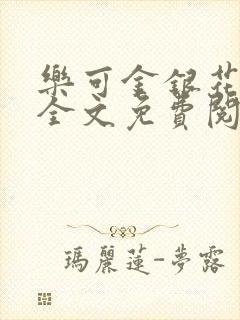 樂可金銀花
全文免費閱
瑪麗蓮-夢露